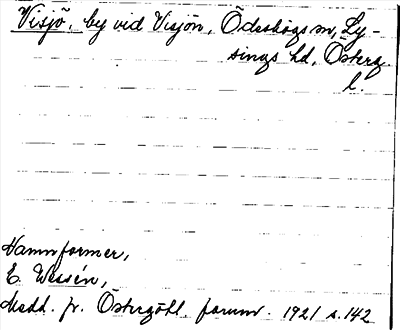 Visjö, by ved Visjön, Ödeshögs sn, Ly-
sings hd, Österg.
l.
Namnformer,
E. Wessén,
Medd. fr. Östergötl. fornm. 1921 s. 142